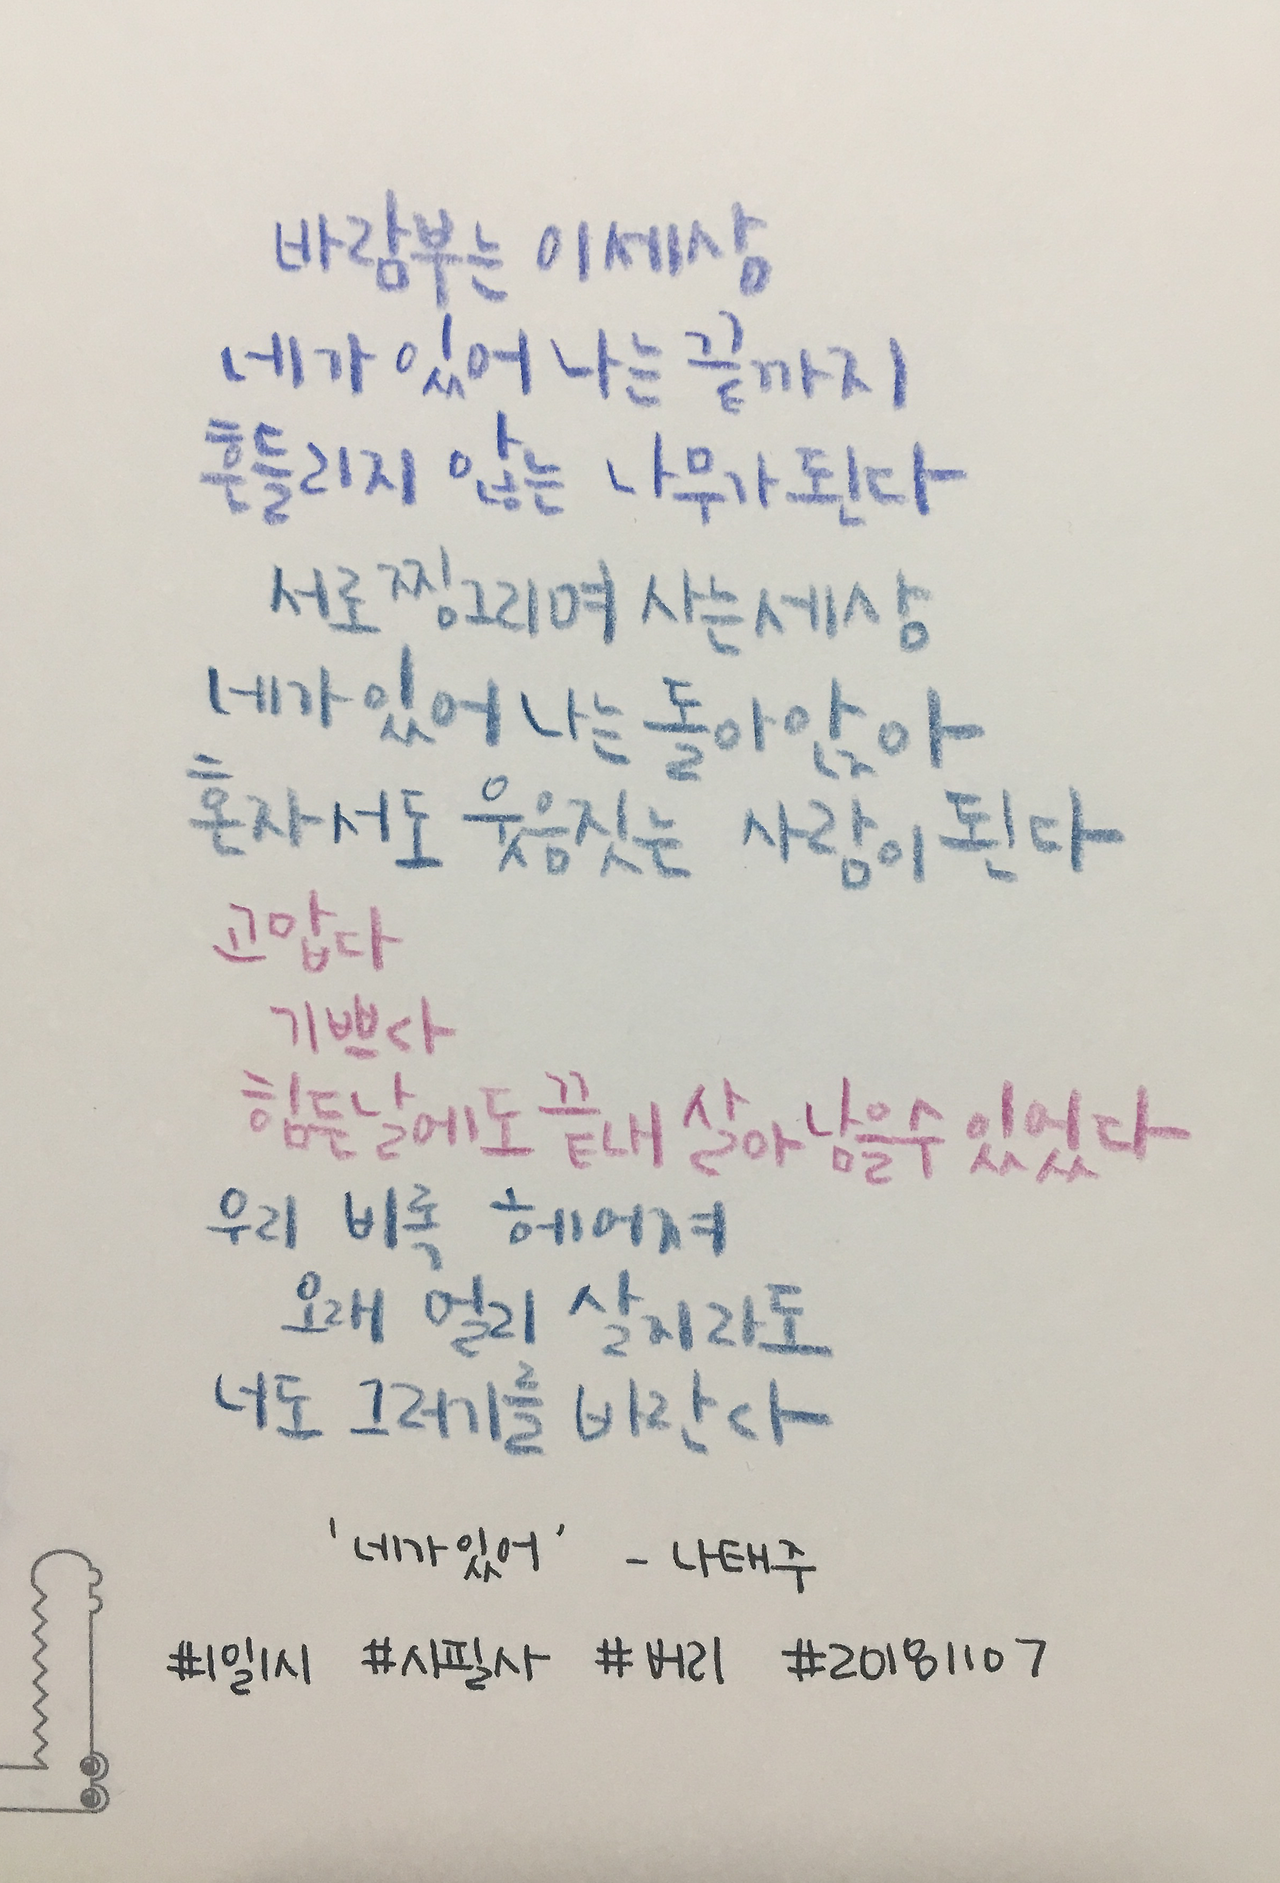 바람부는 이 세상
네가 있어 나는 끝까지
흔들리지 않는 나무가 된다
서로 찡그리며 사는 세상
네가 있어 나는 돌아앉아
혼자서도 웃음짓는 사람이 된다
고맙다
기쁘다
힘든날에도 끝내 살아남을 수 있었다
우리 비록 헤어져
오래 멀리 살지라도
너도 그러기를 바란다
'네가 있어' - 나태주
#1일1시 #시필사 #버리 #20181107